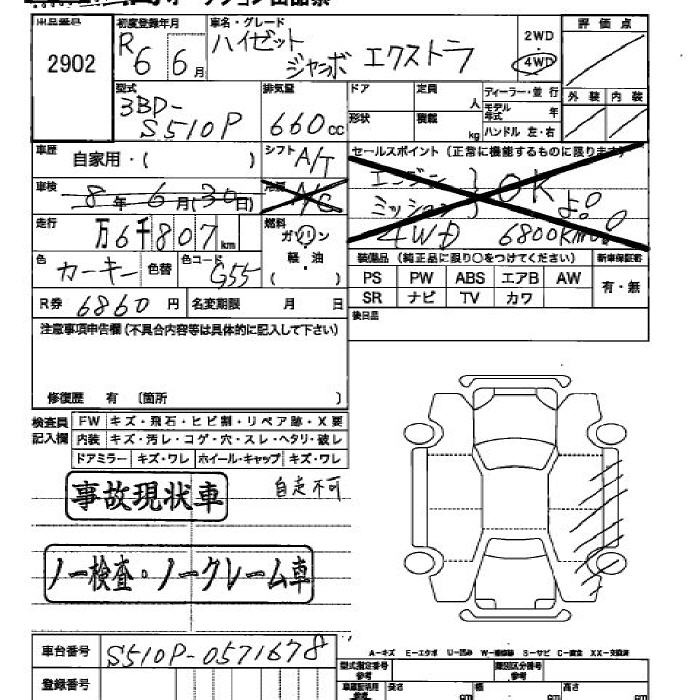 出品番号 初度登録年月 車名・グレード 評価点
2902 R6 6月 ハイゼット ジャンボ エクストラ 2WD 4WD
外装 内装
型式 排気量 ドア 定員 人 ディーラー・並行
3BD-S510P 660cc 形状 積載 kg モデル年式 年 ハンドル 左・右
車歴 自家用・( ) シフト A/T セールスポイント(正常に機能するものに限ります)
車検 8年6月(30日) 冷房 A/C エンジン ミッション OK
走行 万6千807km 燃料 ガソリン 軽油 ( ) 4WD 6800km
色 カーキー 色替 色コード G55 装備品(純正品に限り○をつけてください) 新車保証書
PS PW ABS エアB AW 有・無
R券 6860円 名変期限 月 日 SR ナビ TV カワ
注意事項申告欄(不具合内容等は具体的に記入して下さい) 後日品
修復歴 有 〔箇所 〕
検査員記入欄 FW キズ・飛石・ヒビ割・リペア跡・X要
内装 キズ・汚レ・コゲ・穴・スレ・ヘタリ・破レ
ドアミラー キズ・ワレ ホイール・キャップ キズ・ワレ
事故現状車 自走不可
ノー検査・ノークレーム車
車台番号 S510P-0571678
A-キズ E-エクボ U-凹み W-補修跡 S-サビ C-腐食 XX-交換済
登録番号 型式指定番号 参考 類別区分番号 参考
長さ cm 幅 cm 高さ cm